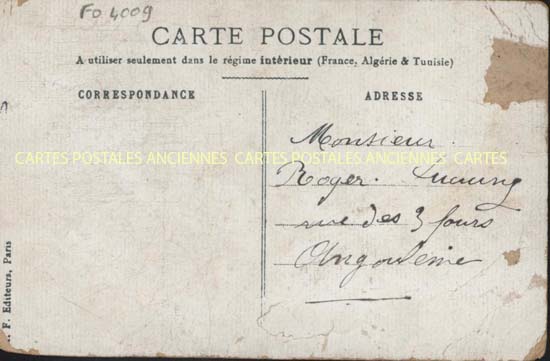 FO 4009
CARTE POSTALE
A utiliser seulement dans le régime intérieur (France, Algérie & Tunisie)
CORRESPONDANCE
ADRESSE
Monsieur
CARTES POSTALES ANCIENNES CARTES POSTALES ANCIENNES CARTES
Roger.
rue des 3 fours
Angoulême
F. Editeurs, Paris